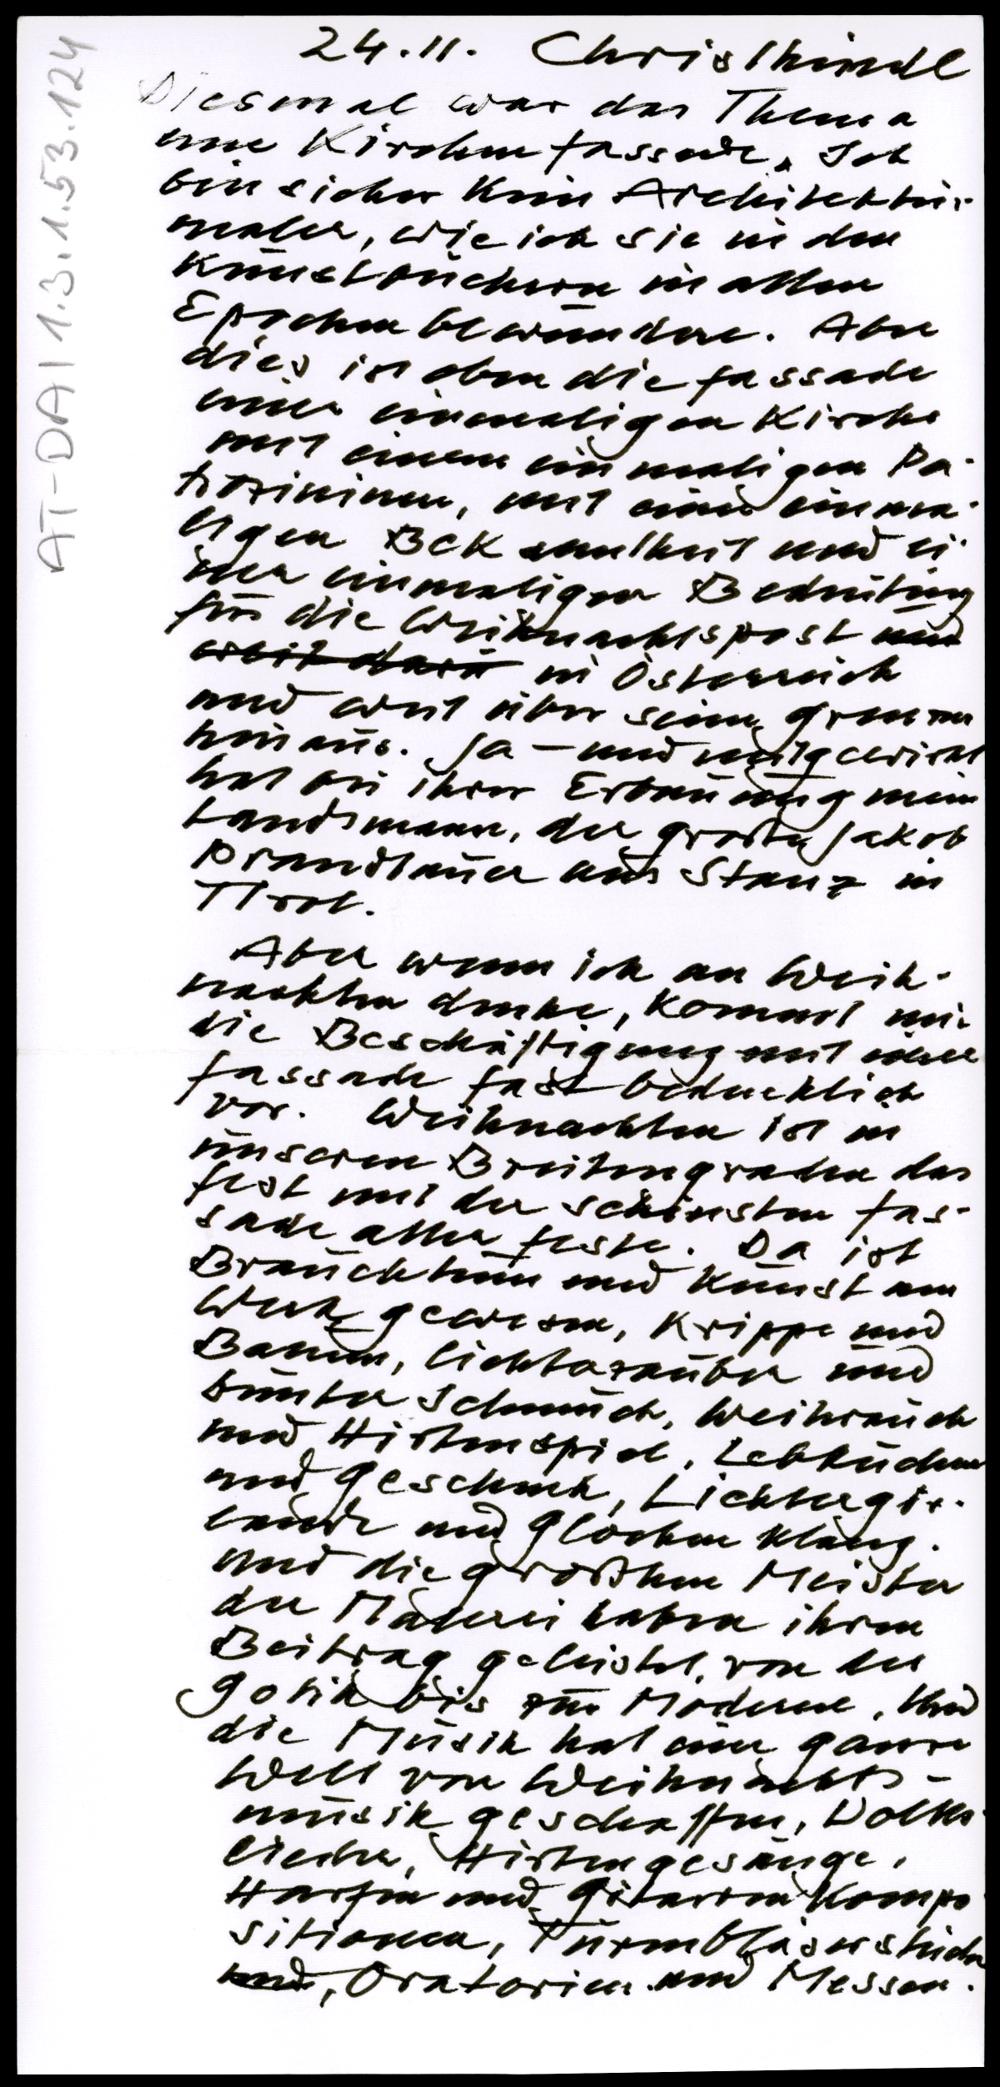 24.11. Christkindl
Diesmal war das Thema
eine Kirchenfassade. Ich
bin sicher kein Architektur-
maler, wie ich sie in den
Kunstbüchern in allen
Epochen bewundere. Aber
dies ist eben die Fassade
einer einmaligen Kirche
mit einem einmaligen Pa-
trozinium, mit einer einma-
ligen Bekanntheit und ei-
ner einmaligen Bedeutung
für die Weihnachtspost und
weit darü in Österreich
und weit über seine Grenzen
hinaus. Ja – und mitgewirkt
hat bei ihrer Erbauung mein
Landsmann, der große Jakob
Prandtauer aus Stanz in
Tirol.
Aber wenn ich an Weih-
nachten denke, kommt mir
die Beschäftigung mit einer
Fassade fast bedenklich
vor. Weihnachten ist in
unseren Breitengraden das
Fest mit der schönsten Fas-
sade aller Feste. Da ist
Brauchtum und Kunst am
Werk gewesen, Krippe und
Baum, Lichterzauber und
bunter Schmuck, Weihrauch
und Hirtenspiel, Lebkuchen
und Geschenk, Lichtergir-
lande und Glockenklang.
und die größten Meister
der Malerei haben ihren
Beitrag geleistet, von der
Gotik bis zur Moderne. Und
die Musik hat eine ganze
Welt von Weihnachts-
musik geschaffen, Volks-
lieder, Hirtengesänge,
Harfen und Gitarren Kompo-
sitionen, Turmbläserstücke
und, Oratorien und Messen.
AT-DAI 1.3.1.53.124